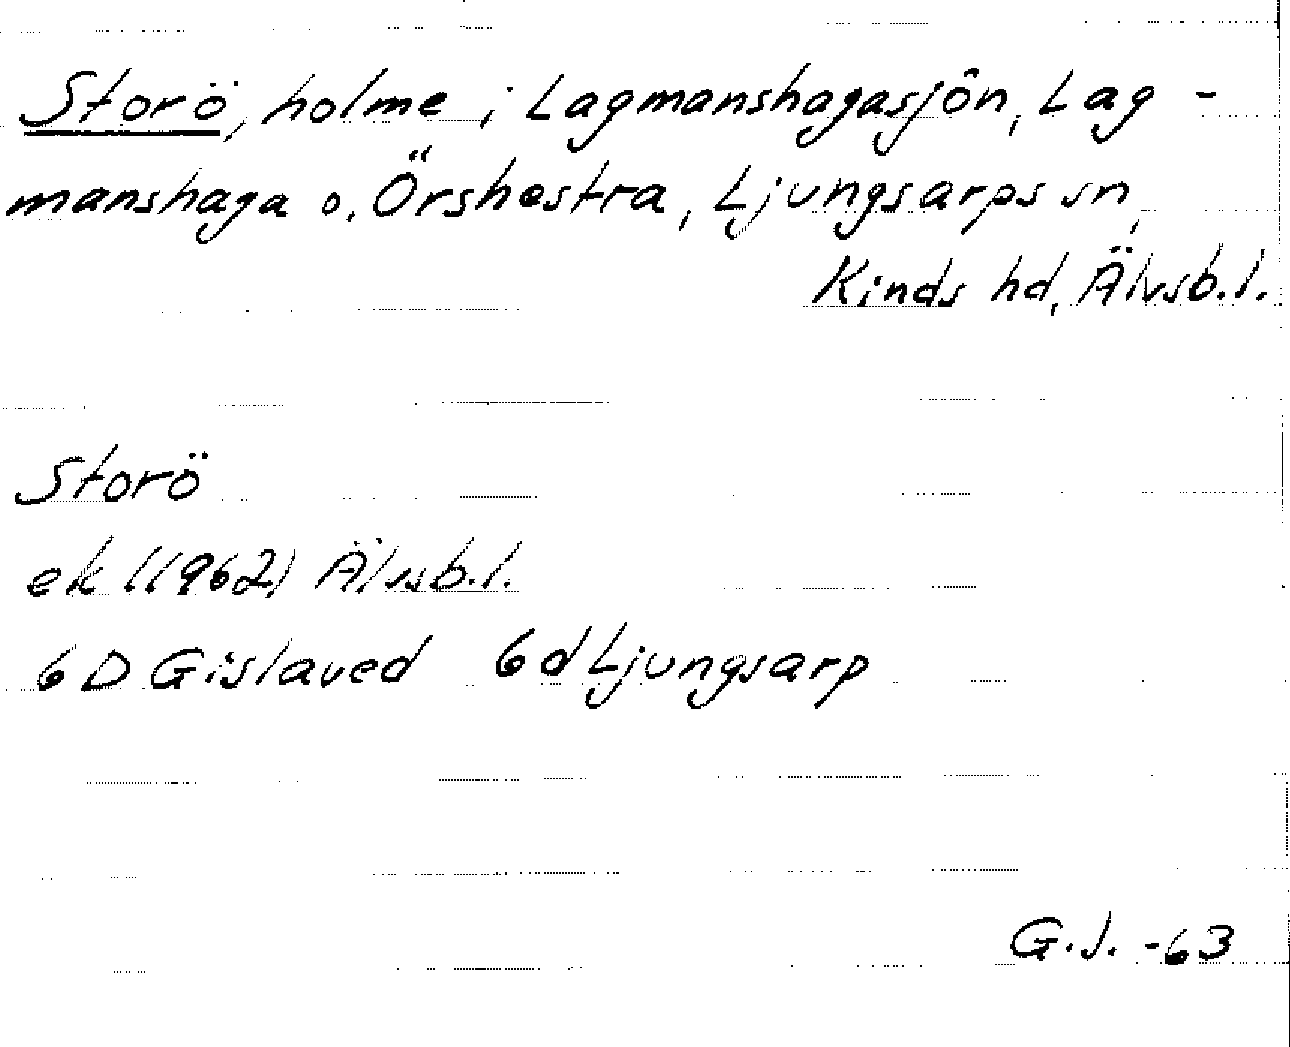 Storö, holme i Lagmanshagasjön, Lag-
manshaga o. Örshestra, Ljungsarps sn,
Kinds hd, Älvsb.l.
Storö
ek (1962) Älvsb.l.
6 D Gislaved 6d Ljungsarp
G.J. -63